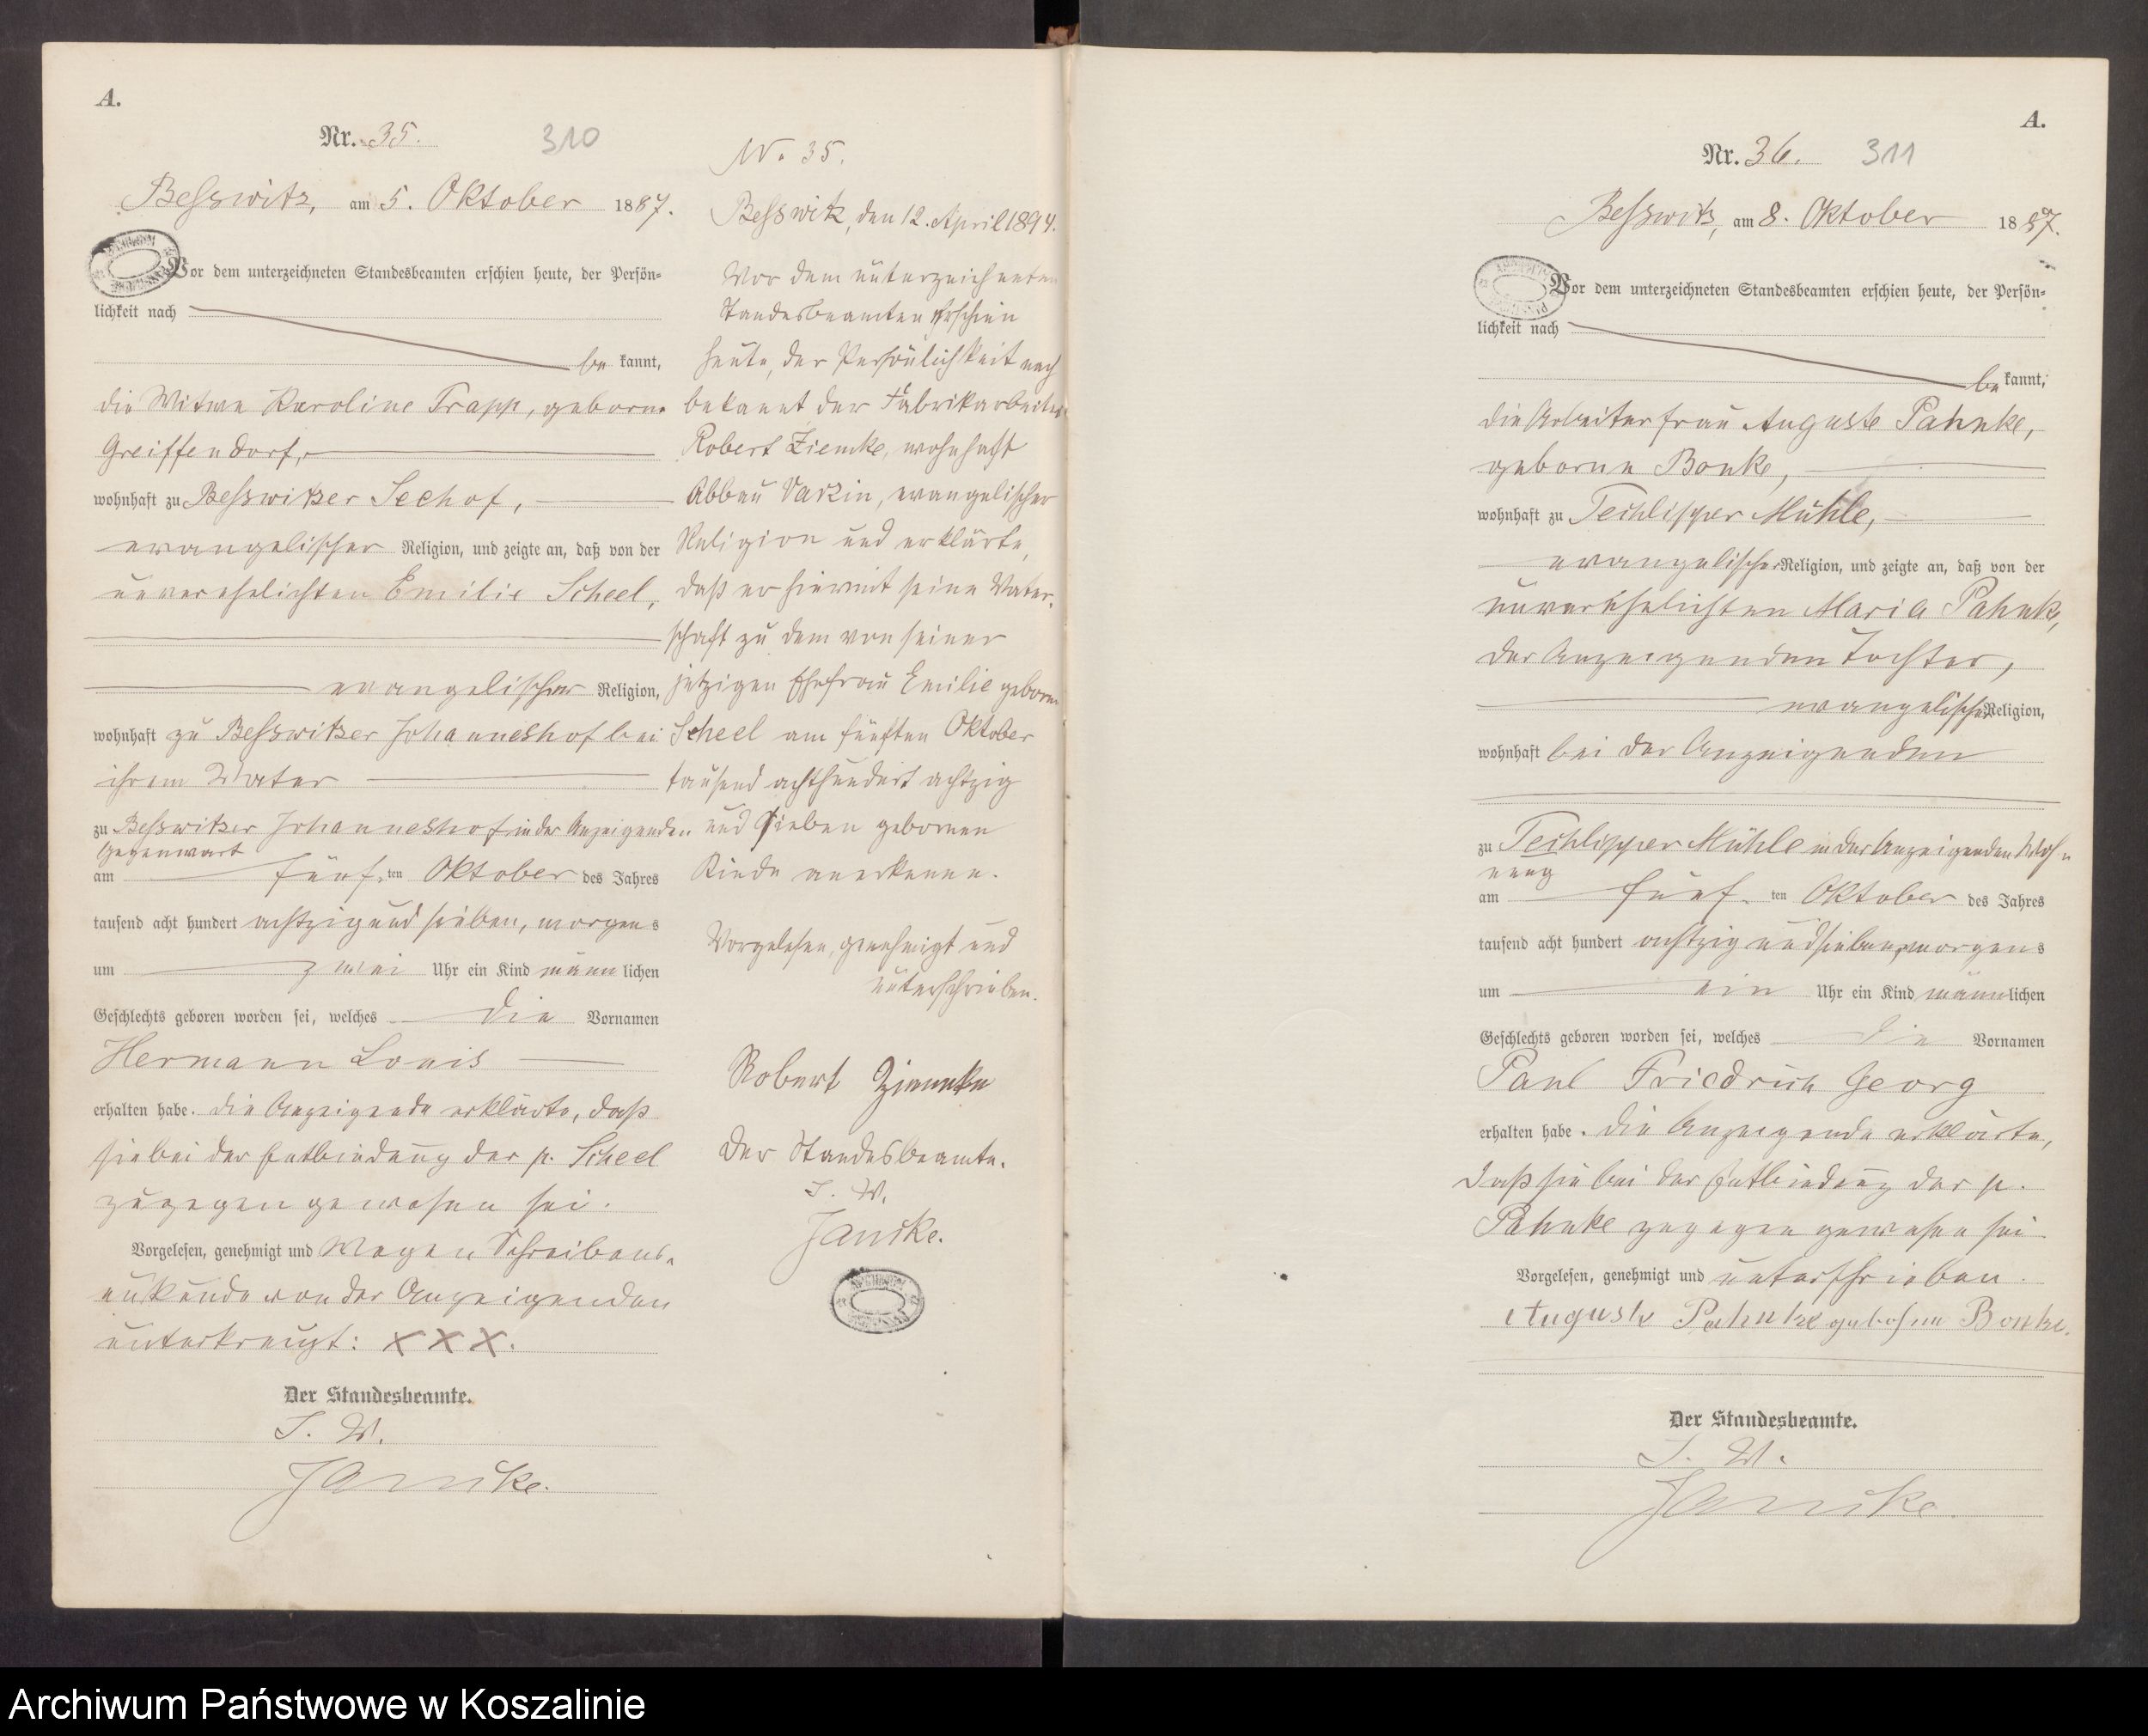 A.
Nr. 35.
310
Besswitz, am 5. Oktober 1887.
Vor dem unterzeichneten Standesbeamten erschien heute, der Persön-
lichkeit nach
be kannt,
die Witwe Karoline Trapp, geborne
Greiffendorf,
wohnhaft zu Besswitzer Seehof,
evangelischer Religion, und zeigte an, daß von der
unverehelichten Emilie Scheel,
evangelischer Religion,
wohnhaft zu Besswitzer Johanneshof bei
ihrem Vater
zu Besswitzer Johanneshof in der Anzeigenden
Gegenwart
am fünf ten Oktober des Jahres
tausend acht hundert achtzig und sieben, morgens
um zwei Uhr ein Kind männ lichen
Geschlechts geboren worden sei, welches die Vornamen
Hermann Louis
erhalten habe. Die Anzeigende erklärte, daß
sie bei der Entbindung der p. Scheel
zugegen gewesen sei.
Vorgelesen, genehmigt und wegen Schreibens-
unkunde von der Anzeigenden
unterkreuzt: XXX.
Der Standesbeamte.
I. V.
Janike.
No. 35.
Besswitz, den 12. April 1894.
Vor dem unterzeichneten
Standesbeamten erschien
heute, der Persönlichkeit nach
bekannt der Fabrikarbeiter
Robert Ziemke, wohnhaft
Abbau Varzin, evangelischer
Religion und erklärte,
daß er hiermit seine Vater-
schaft zu dem von seiner
jetzigen Ehefrau Emilie geborne
Scheel am fünften Oktober
tausend achthundert achtzig
und sieben geborenen
Kinde anerkenne.
Vorgelesen, genehmigt und
unterschrieben.
Robert Ziemke
Der Standesbeamte.
I. V.
Janike.
A.
Nr. 36.
311
Besswitz, am 8. Oktober 1887.
Vor dem unterzeichneten Standesbeamten erschien heute, der Persön-
lichkeit nach
be kannt,
die Arbeiterfrau Auguste Pahnke,
geborne Bonke,
wohnhaft zu Techlipper Mühle,
evangelischer Religion, und zeigte an, daß von der
unverehelichten Maria Pahnke,
der Anzeigenden Tochter,
evangelischer Religion,
wohnhaft bei der Anzeigenden
zu Techlipper Mühle in der Anzeigenden Woh-
nung
am fünf ten Oktober des Jahres
tausend acht hundert achtzig und sieben, morgens
um ein Uhr ein Kind männlichen
Geschlechts geboren worden sei, welches die Vornamen
Paul Friedrich Georg
erhalten habe. Die Anzeigende erklärte,
daß sie bei der Entbindung der p.
Pahnke zugegen gewesen sei.
Vorgelesen, genehmigt und unterschrieben.
Auguste Pahnke geborne Bonke.
Der Standesbeamte.
I. V.
Janike.
Archiwum Państwowe w Koszalinie